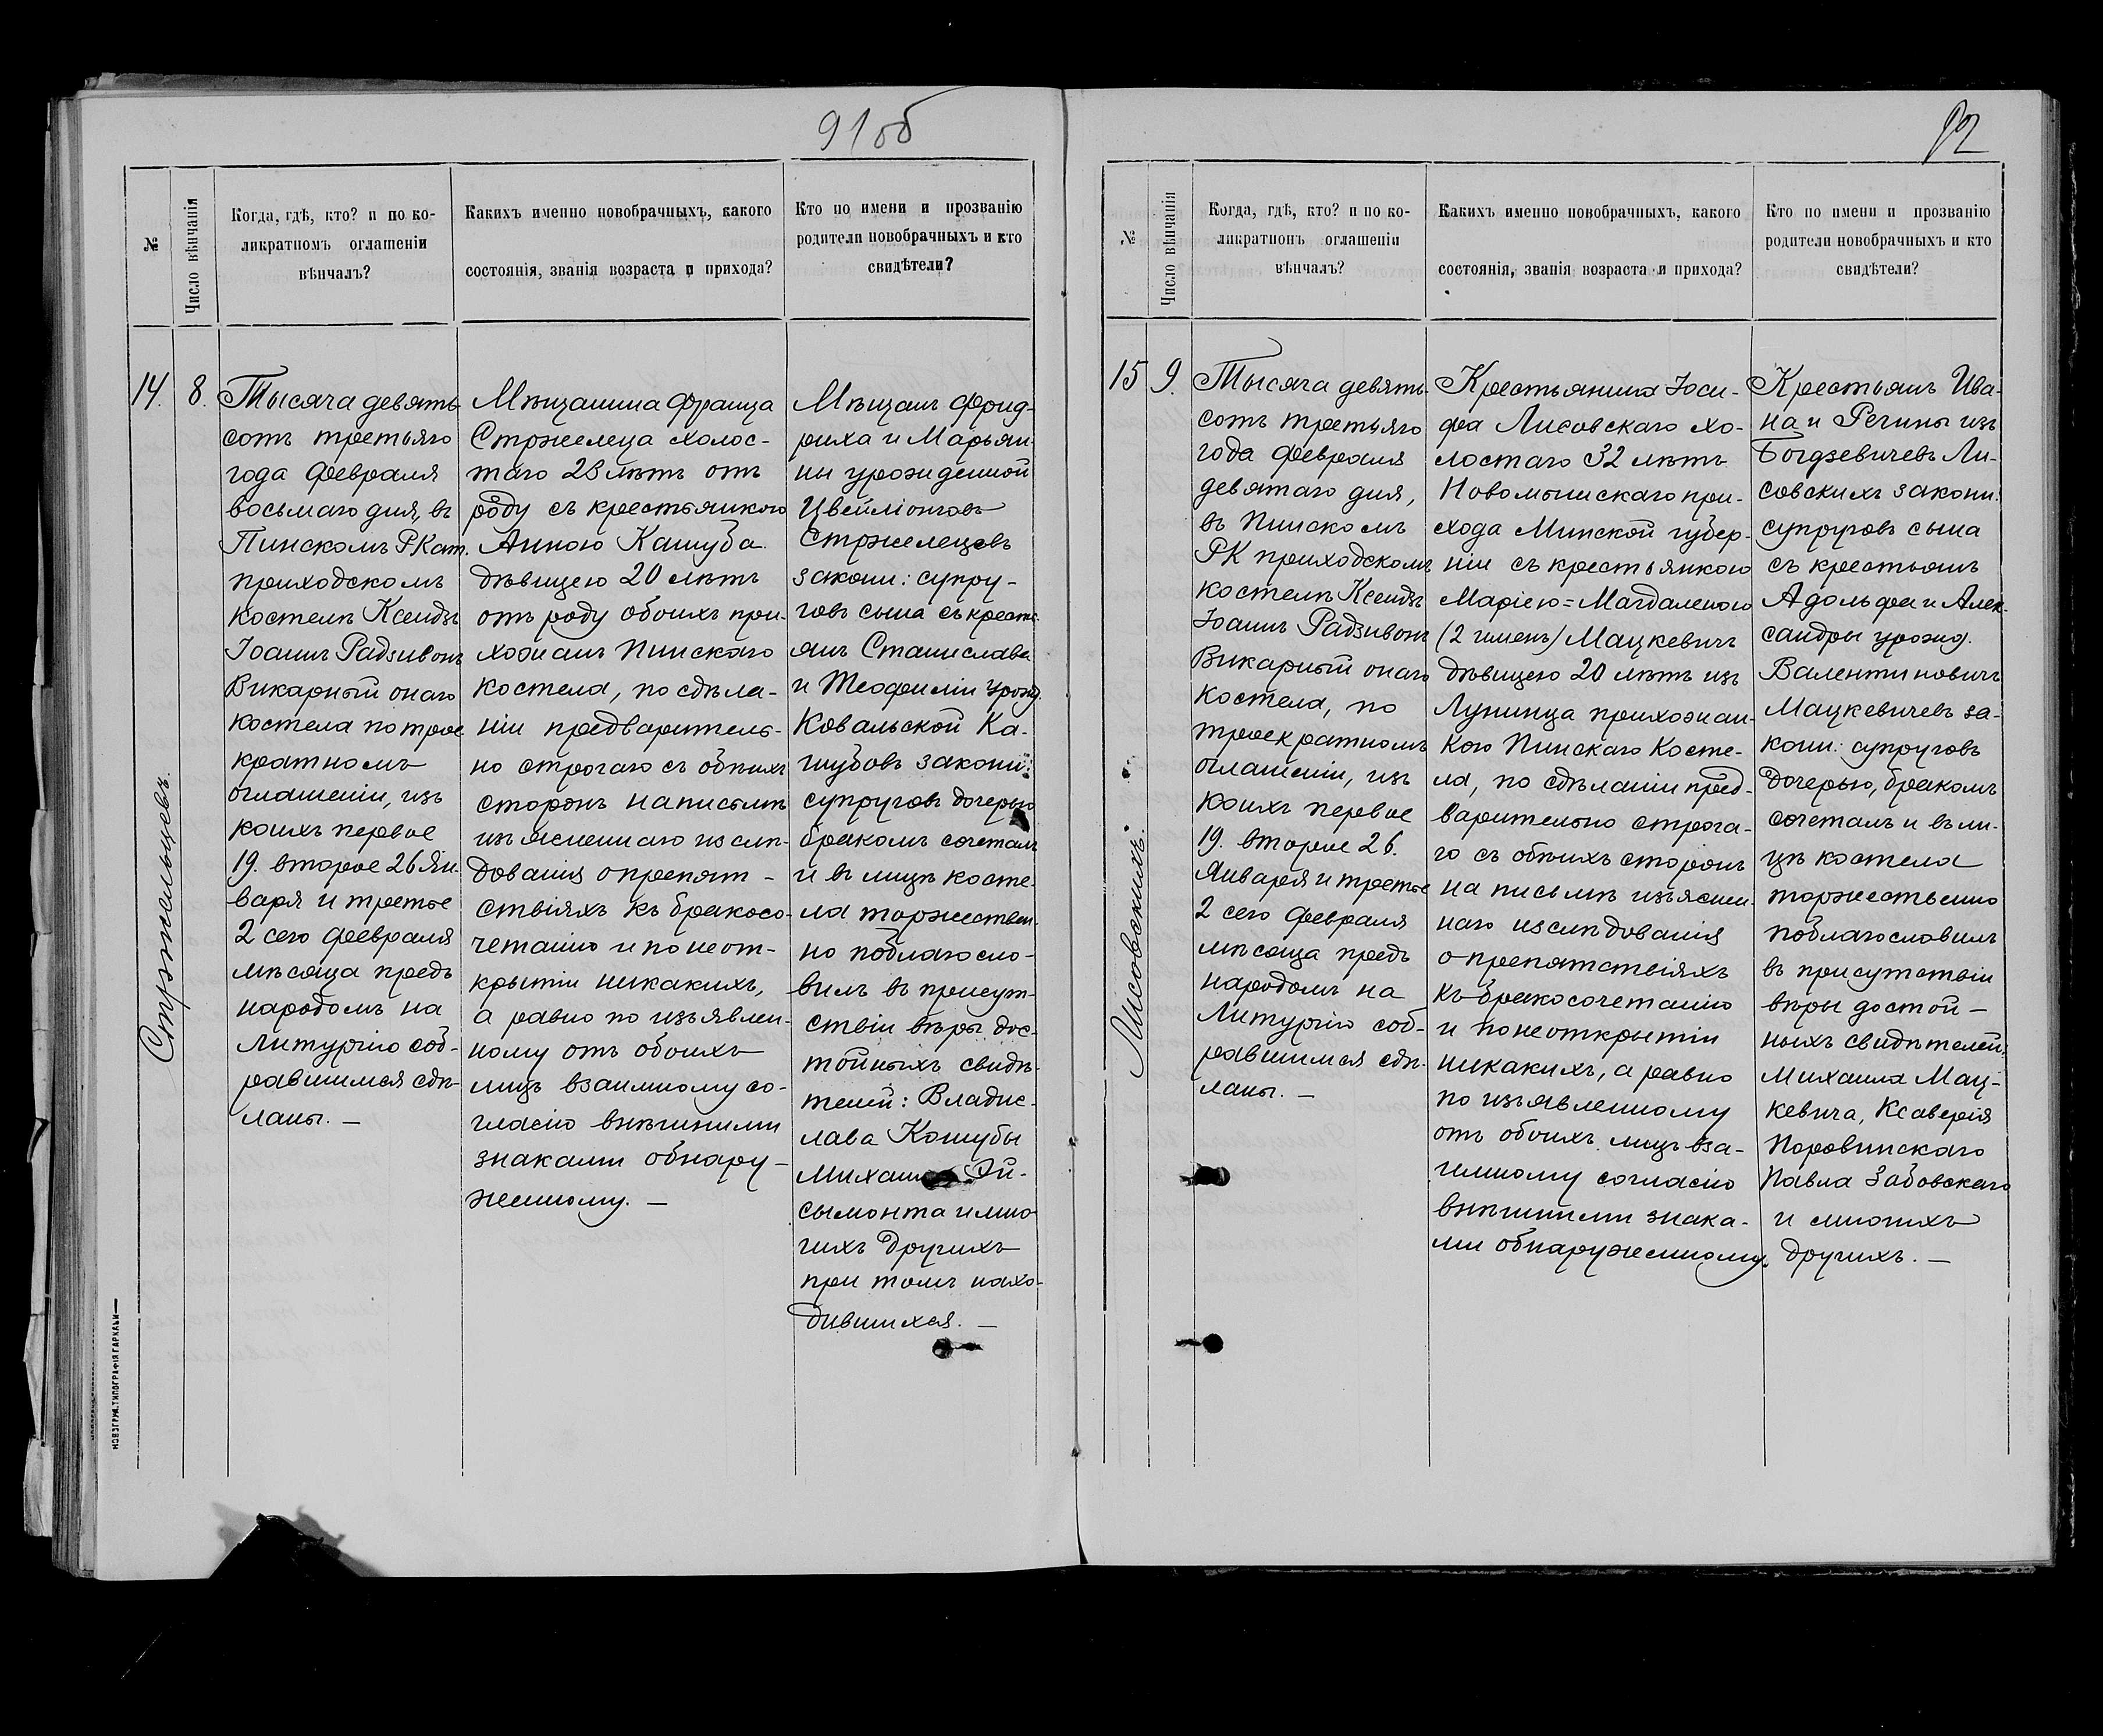 91об
№
Число вѣнчанія
Когда, гдѣ, кто? и по ко-
ликратномъ оглашеніи
вѣнчалъ?
Каихъ именно новобрачныхъ, какого
состоянія, званія возраста и прихода?
Кто по имени и прозванію
родители новобрачныхъ и кто
свидѣтели?
14.
8.
Стржельцевъ.
Тысяча девять-
сотъ третьяго
года февраля
восьмаго дня, въ
Пинскомъ РКат.
приходскомъ
костелѣ Ксендзъ
Іоаннъ Радзивонъ
Викарный онаго
костела по трое
кратномъ
оглашеніи, изъ
коихъ первое
19. второе 26 Ян-
варя и третье
2 сего февраля
мѣсяца предъ
народомъ на
Литургію соб-
равшимся сдѣ-
ланы. —
Мѣщанина Франца
Стржелеца холос-
таго 23 лѣтъ отъ
роду съ крестьянкою
Анною Кашуба
дѣвицею 20 лѣтъ
отъ роду обоихъ при-
хожанъ Пинскаго
костела, по сдѣла-
ніи предваритель-
но строгаго съ обѣихъ
сторонъ на письмѣ
изъясненнаго изслѣ-
дованія о препят-
ствіяхъ къ бракосо-
четанію и по неот-
крытіи никакихъ,
а равно по изъявлен-
ному отъ обоихъ
лицъ взаимному со-
гласію внѣшними
знаками обнару-
женному. —
Мѣщанъ Фрид-
риха и Марьян-
ны урожденной
Цвейлонговъ
Стржелецовъ
законн: супру-
говъ сына съ кресть-
янъ Станислава
и Теофиліи урожд.
Ковальской Ка-
шубовъ законн:
супруговъ дочерью
бракомъ сочеталъ
и въ лицѣ косте-
ла торжествен-
но поблагосло-
вилъ въ присут-
ствіи вѣры дос-
тойныхъ свидѣ-
телей: Владис-
лава Кошубы
Михаила Эй-
сымонта и мно-
гихъ другихъ
при томъ нахо-
дившихся. —
НОВОГРУД. ТИПОГРАФІЯ ГАРКАВИ
92
№
Число вѣнчанія
Когда, гдѣ, кто? и по ко-
ликратномъ оглашеніи
вѣнчалъ?
Какихъ именно новобрачныхъ, какого
состоянія, званія возраста и прихода?
Кто по имени и прозванію
родители новобрачныхъ и кто
свидѣтели?
15
9.
Лисовскихъ.
Тысяча девять-
сотъ третьяго
года февраля
девятаго дня,
въ Пинскомъ
РК приходскомъ
костелѣ Ксендзъ
Іоаннъ Радзивонъ
Викарный онаго
костела, по
троекратномъ
оглашеніи, изъ
коихъ первое
19. второе 26.
Января и третье
2 сего февраля
мѣсяца предъ
народомъ на
Литургію соб-
равшимся сдѣ-
ланы. —
Крестьянина Іоси-
фа Лисовскаго хо-
лостаго 32 лѣтъ
Новомышскаго при-
хода Минской губер-
ніи съ крестьянкою
Маріею=Магдаленою
(2 именъ) Мацкевичъ
дѣвицею 20 лѣтъ изъ
Лунинца прихожан-
кою Пинскаго Косте-
ла, по сдѣланіи пред-
варительно строга-
го съ обѣихъ сторонъ
на письмѣ изъяснен-
наго изслѣдованія
о препятствіяхъ
къ бракосочетанію
и по неоткрытіи
никакихъ, а равно
по изъявленному
отъ обоихъ лицъ вза-
имному согласію
внѣшними знака-
ми обнаруженному.
Крестьянъ Ива-
на и Регины изъ
Богдзевичевъ Ли-
совскихъ законн:
супруговъ сына
съ крестьянъ
Адольфа и Алек-
сандры урожд.
Валентиновичъ
Мацкевичевъ за-
конн: супруговъ
дочерью, бракомъ
сочеталъ и въ ли-
цѣ костела
торжественно
поблагословилъ
въ присутствіи
вѣры достой-
ныхъ свидѣтелей:
Михаила Мац-
кевича, Ксаверія
Поровинскаго
Павла Забовскаго
и многихъ
другихъ. —